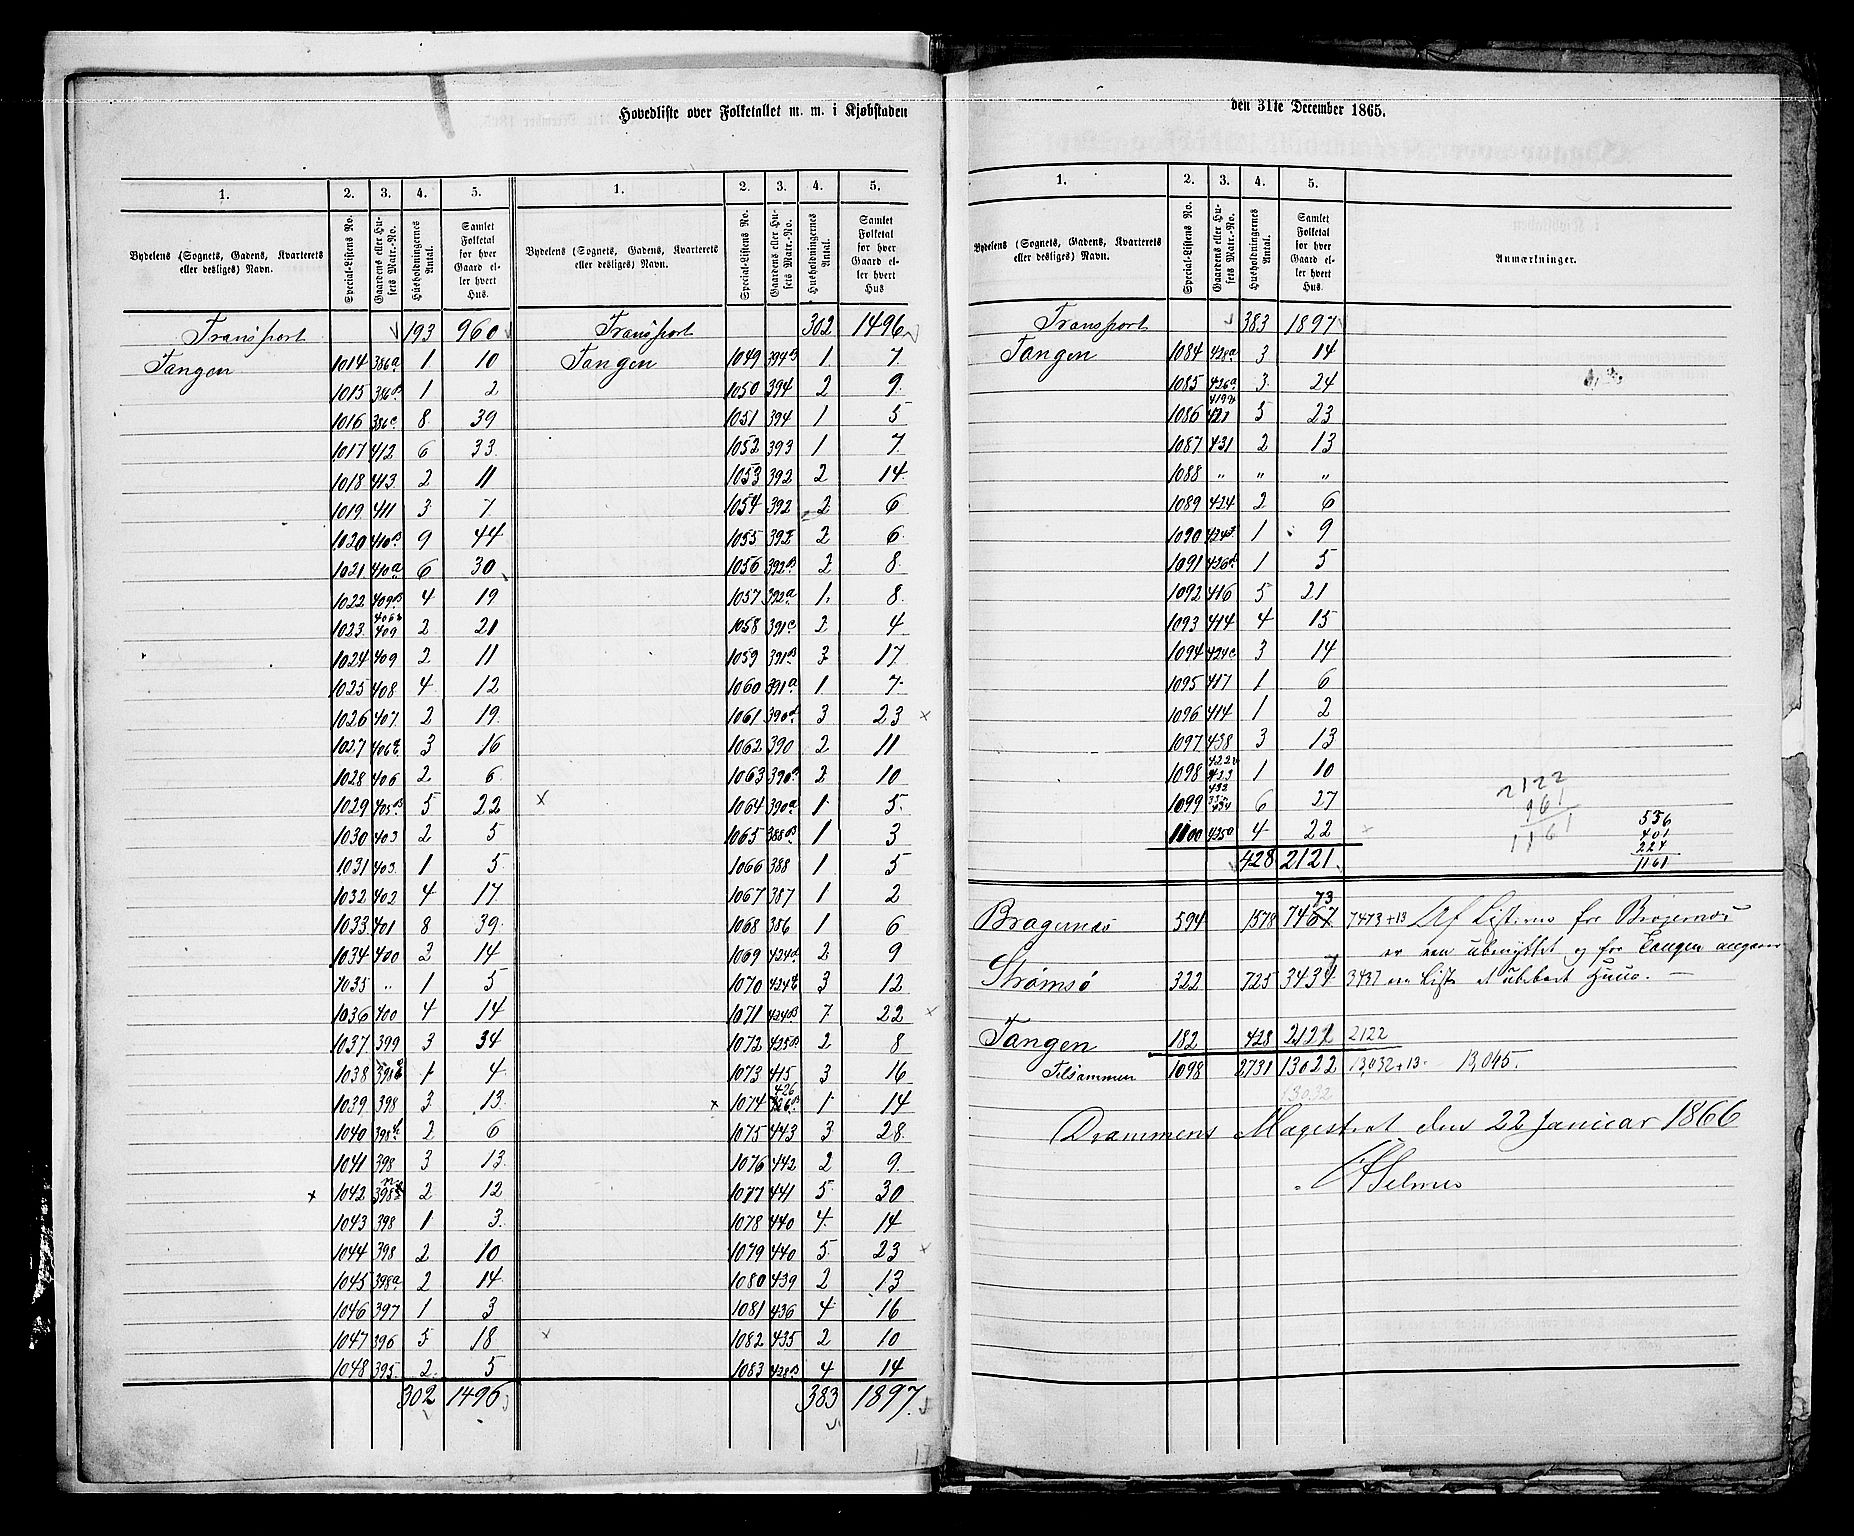 Hovedliste over Folketallet m. m. i Kjøbstaden
1. 2. 3. 4. 5. 1. 2. 3. 4. 5.
Bydelens (Sognets, Gadens, Kvarterets eller desliges) Navn. Special-Listens No. Gaardens eller Husets Matr.-No. Husholdningernes Antal. Samlet Folketal for hver Gaard eller hvert Hus.
Bydelens (Sognets, Gadens, Kvarterets eller desliges) Navn. Special-Listens No. Gaardens eller Husets Matr.-No. Husholdningernes Antal. Samlet Folketal for hver Gaard eller hvert Hus
Transport 193 960
Tangen 1014 386a 1 10
1015 386b 1 2
1016 386c 8 39
1017 412 6 33
1018 413 2 11
1019 411 3 7
1020 410b 9 44
1021 410a 6 30
1022 409b 4 19
1023 409 2 21
1024 409 2 11
1025 408 4 12
1026 407 2 19
1027 406 3 16
1028 406 2 6
1029 405b 5 22
1030 403 2 5
1031 403 1 5
1032 402 4 17
1033 401 8 39
1034 400 2 14
1035 " 1 5
1036 400 4 14
1037 399 3 34
1038 398 1 4
1039 398 3 13
1040 398 2 6
1041 398 3 13
x 1042 398 2 12
1043 398 1 3
1044 398 2 10
1045 398a 2 14
1046 397 1 3
1047 396 5 18
1048 395 2 5
302 1496
Transport 302 1496
Tangen 1049 394b 1 7
1050 394 2 9
1051 394 1 5
1052 393 1 7
1053 392 2 14
1054 392 2 6
1055 392 2 6
1056 392b 2 8
1057 392a 1 8
1058 391c 2 4
1059 391b 3 17
1060 391a 1 7
1061 390d 3 23 x
1062 390 2 11
1063 390 2 10
x 1064 390a 1 5
1065 388b 1 3
1066 388 1 5
1067 387 1 2
1068 386 1 6
1069 424d 2 9
1070 424 3 12
1071 424b 7 22 x
1072 425b 2 8
1073 415 3 16
x 1074 426 1 14
1075 443 3 28
1076 442 2 9
1077 441 5 30
1078 440 4 14
1079 440 5 23 x
1080 439 2 13
1081 436 4 16
x 1082 435 2 10
1083 428b 4 14
383 1897
den 31te December 1865.
1. 2. 3. 4. 5.
Bydelens (Sognets, Gadens, Kvarterets eller desliges) Navn. Special-Listens No. Gaardens eller Husets Matr.-No. Husholdningernes Antal. Samlet Folketal for hver Gaard eller hvert Hus. Anmærkninger.
Transport 383 1897
Tangen 1084 428a 3 14
1085 426a 3 24
1086 421 5 23
1087 431 2 13
1088 " " "
1089 424 2 6
1090 424 1 9
1091 426d 1 5
1092 416 5 21
1093 414 4 15
1094 424c 3 14
1095 417 1 6
1096 414 1 2
1097 438 3 13
1098 423 1 10
1099 434 6 27
1100 425 4 22 x
428 2121
2122
961
1161
536
401
224
1161
Bragernæs 594 1578 7467 73 7473+13 Af Listerne for Bragernæs
er een ubenyttet og for Tangen angaaer
Strømsø 322 725 3434 3437 een Liste et ubeboet Huus. —
Tangen 182 428 2121 2122
Tilsammen 1098 2731 13022 13,032+13 13,045.
13032
Drammens Magistrat den 22 Januar 1866
Selmer